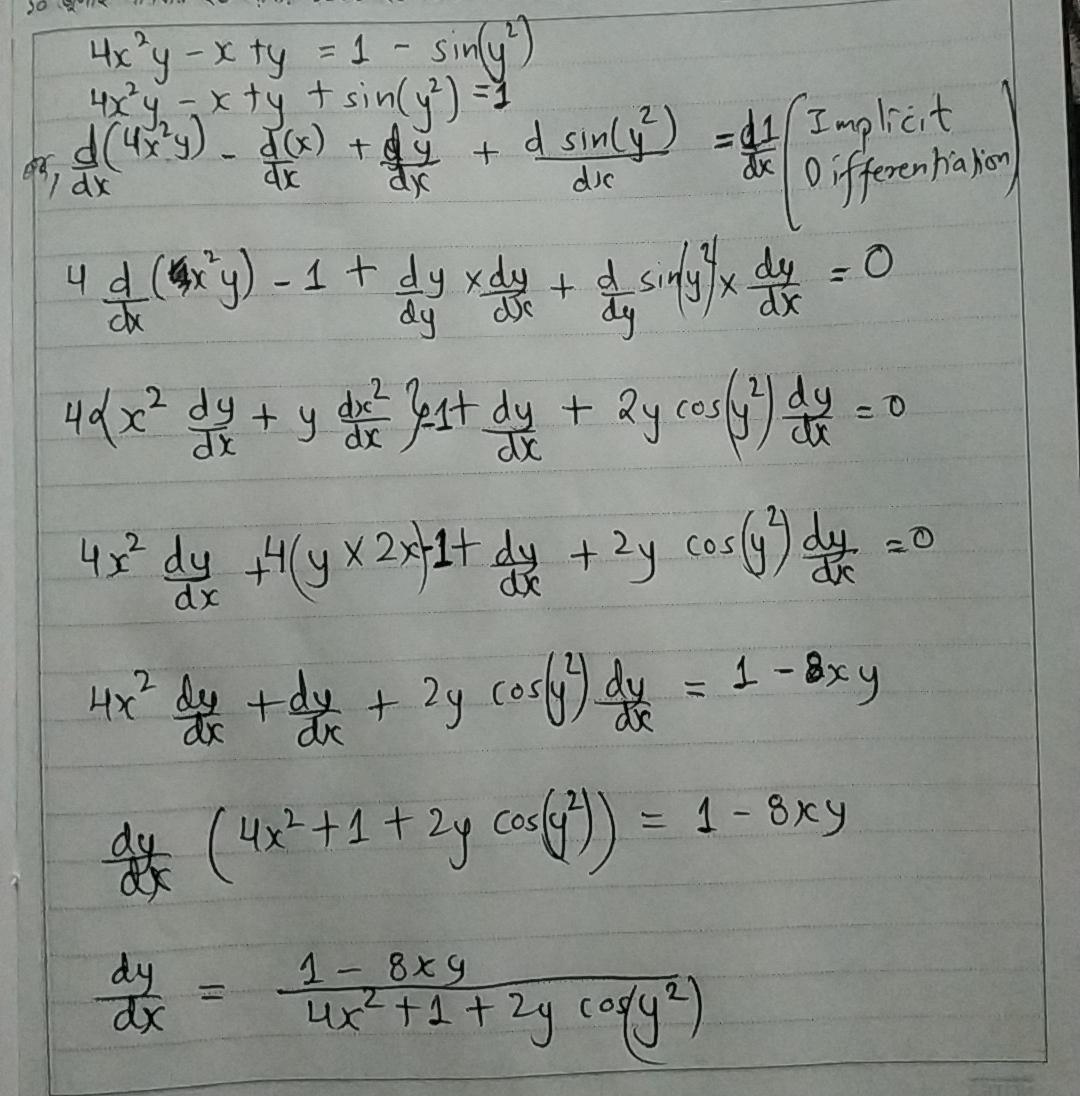 4x²y - x + y = 1 - sin(y²)
4x²y - x + y + sin(y²) = 1
or, d(4x²y)/dx - d(x)/dx + dy/dx + d sin(y²)/dx = d1/dx (Implicit Differentiation)
4 d/dx (x²y) - 1 + dy/dy × dy/dx + d/dy sin(y²) × dy/dx = 0
4{x² dy/dx + y dx²/dx} - 1 + dy/dx + 2y cos(y²) dy/dx = 0
4x² dy/dx + 4(y × 2x) - 1 + dy/dx + 2y cos(y²) dy/dx = 0
4x² dy/dx + dy/dx + 2y cos(y²) dy/dx = 1 - 8xy
dy/dx (4x² + 1 + 2y cos(y²)) = 1 - 8xy
dy/dx = (1 - 8xy)/(4x² + 1 + 2y cos(y²))